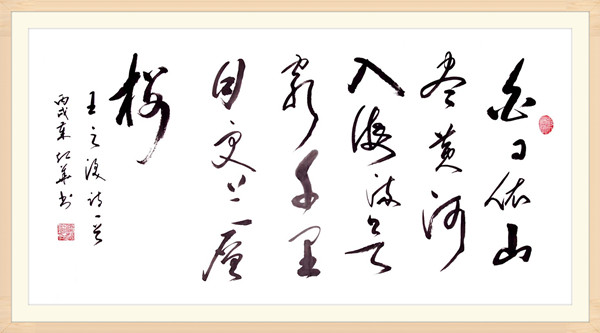 白日依山
尽黄河
入海流欲
穷千里
目更上一層
楼
王之涣诗一首
丙戌 红华书